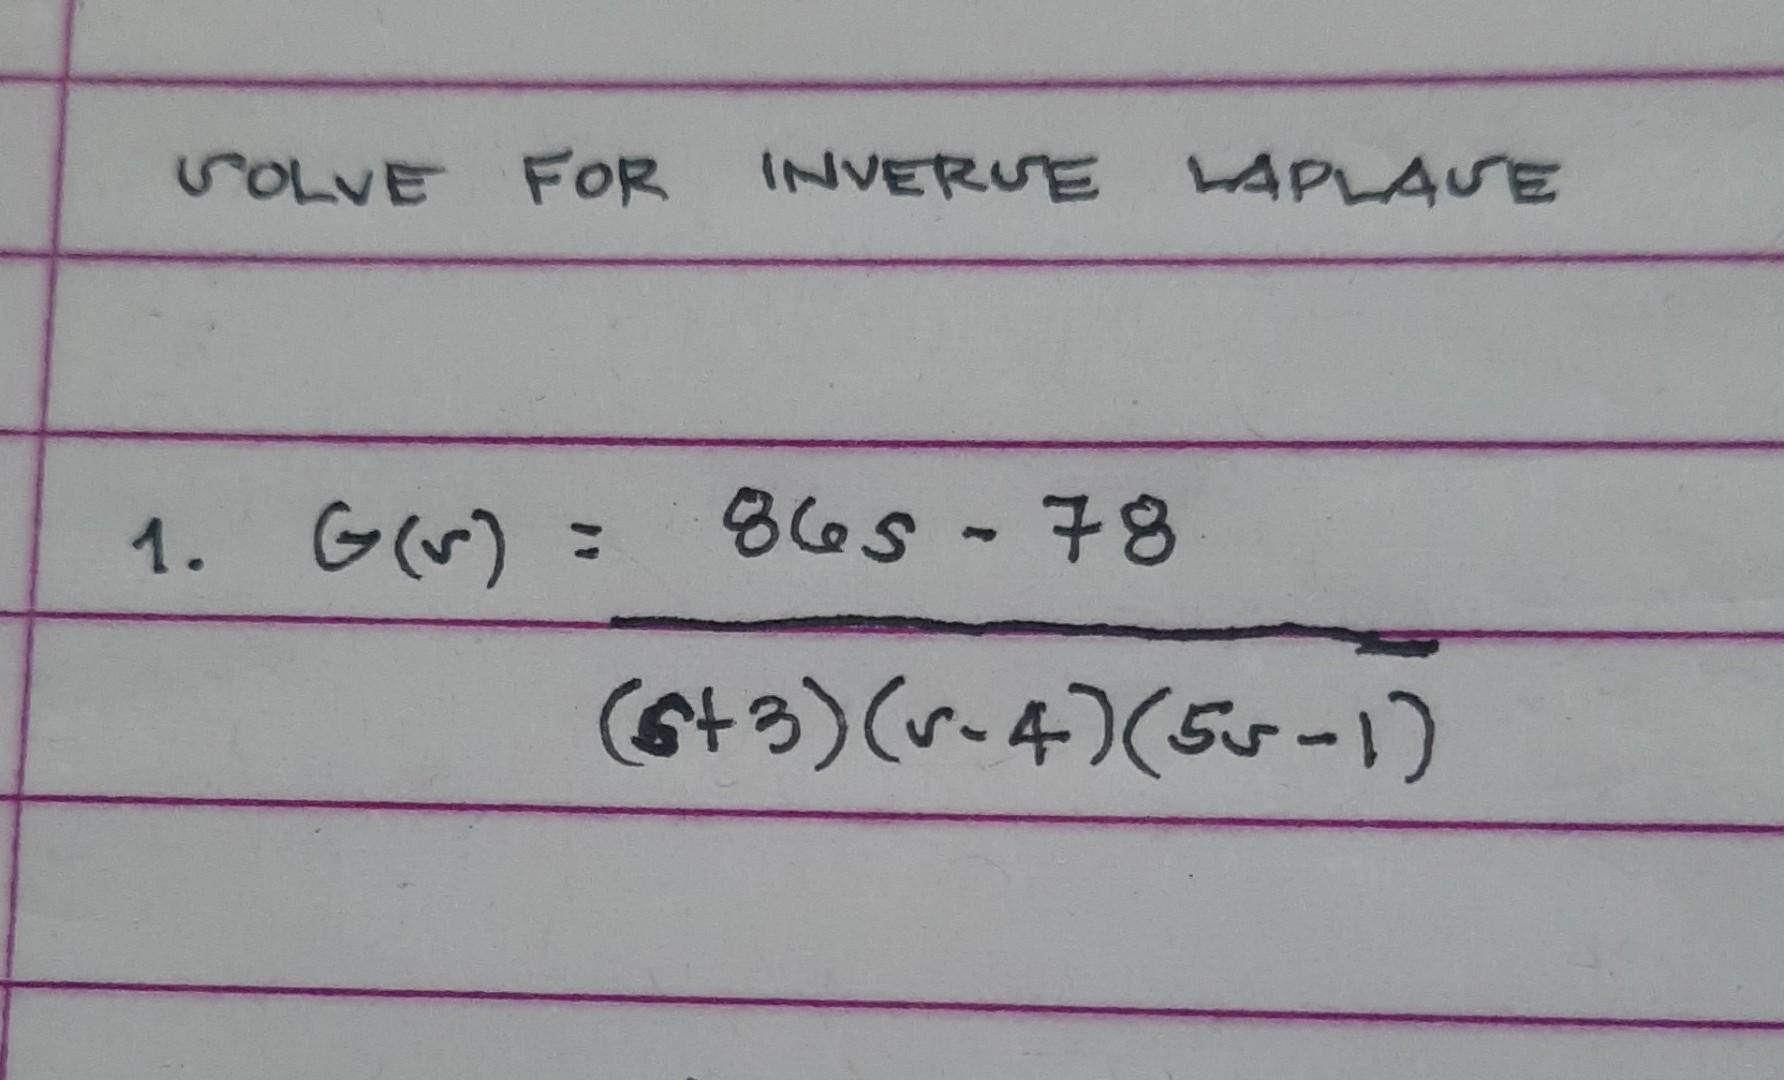 SOLVE FOR INVERSE LAPLASE
1. G(s) = 86s - 78
(s+3)(s-4)(5s-1)